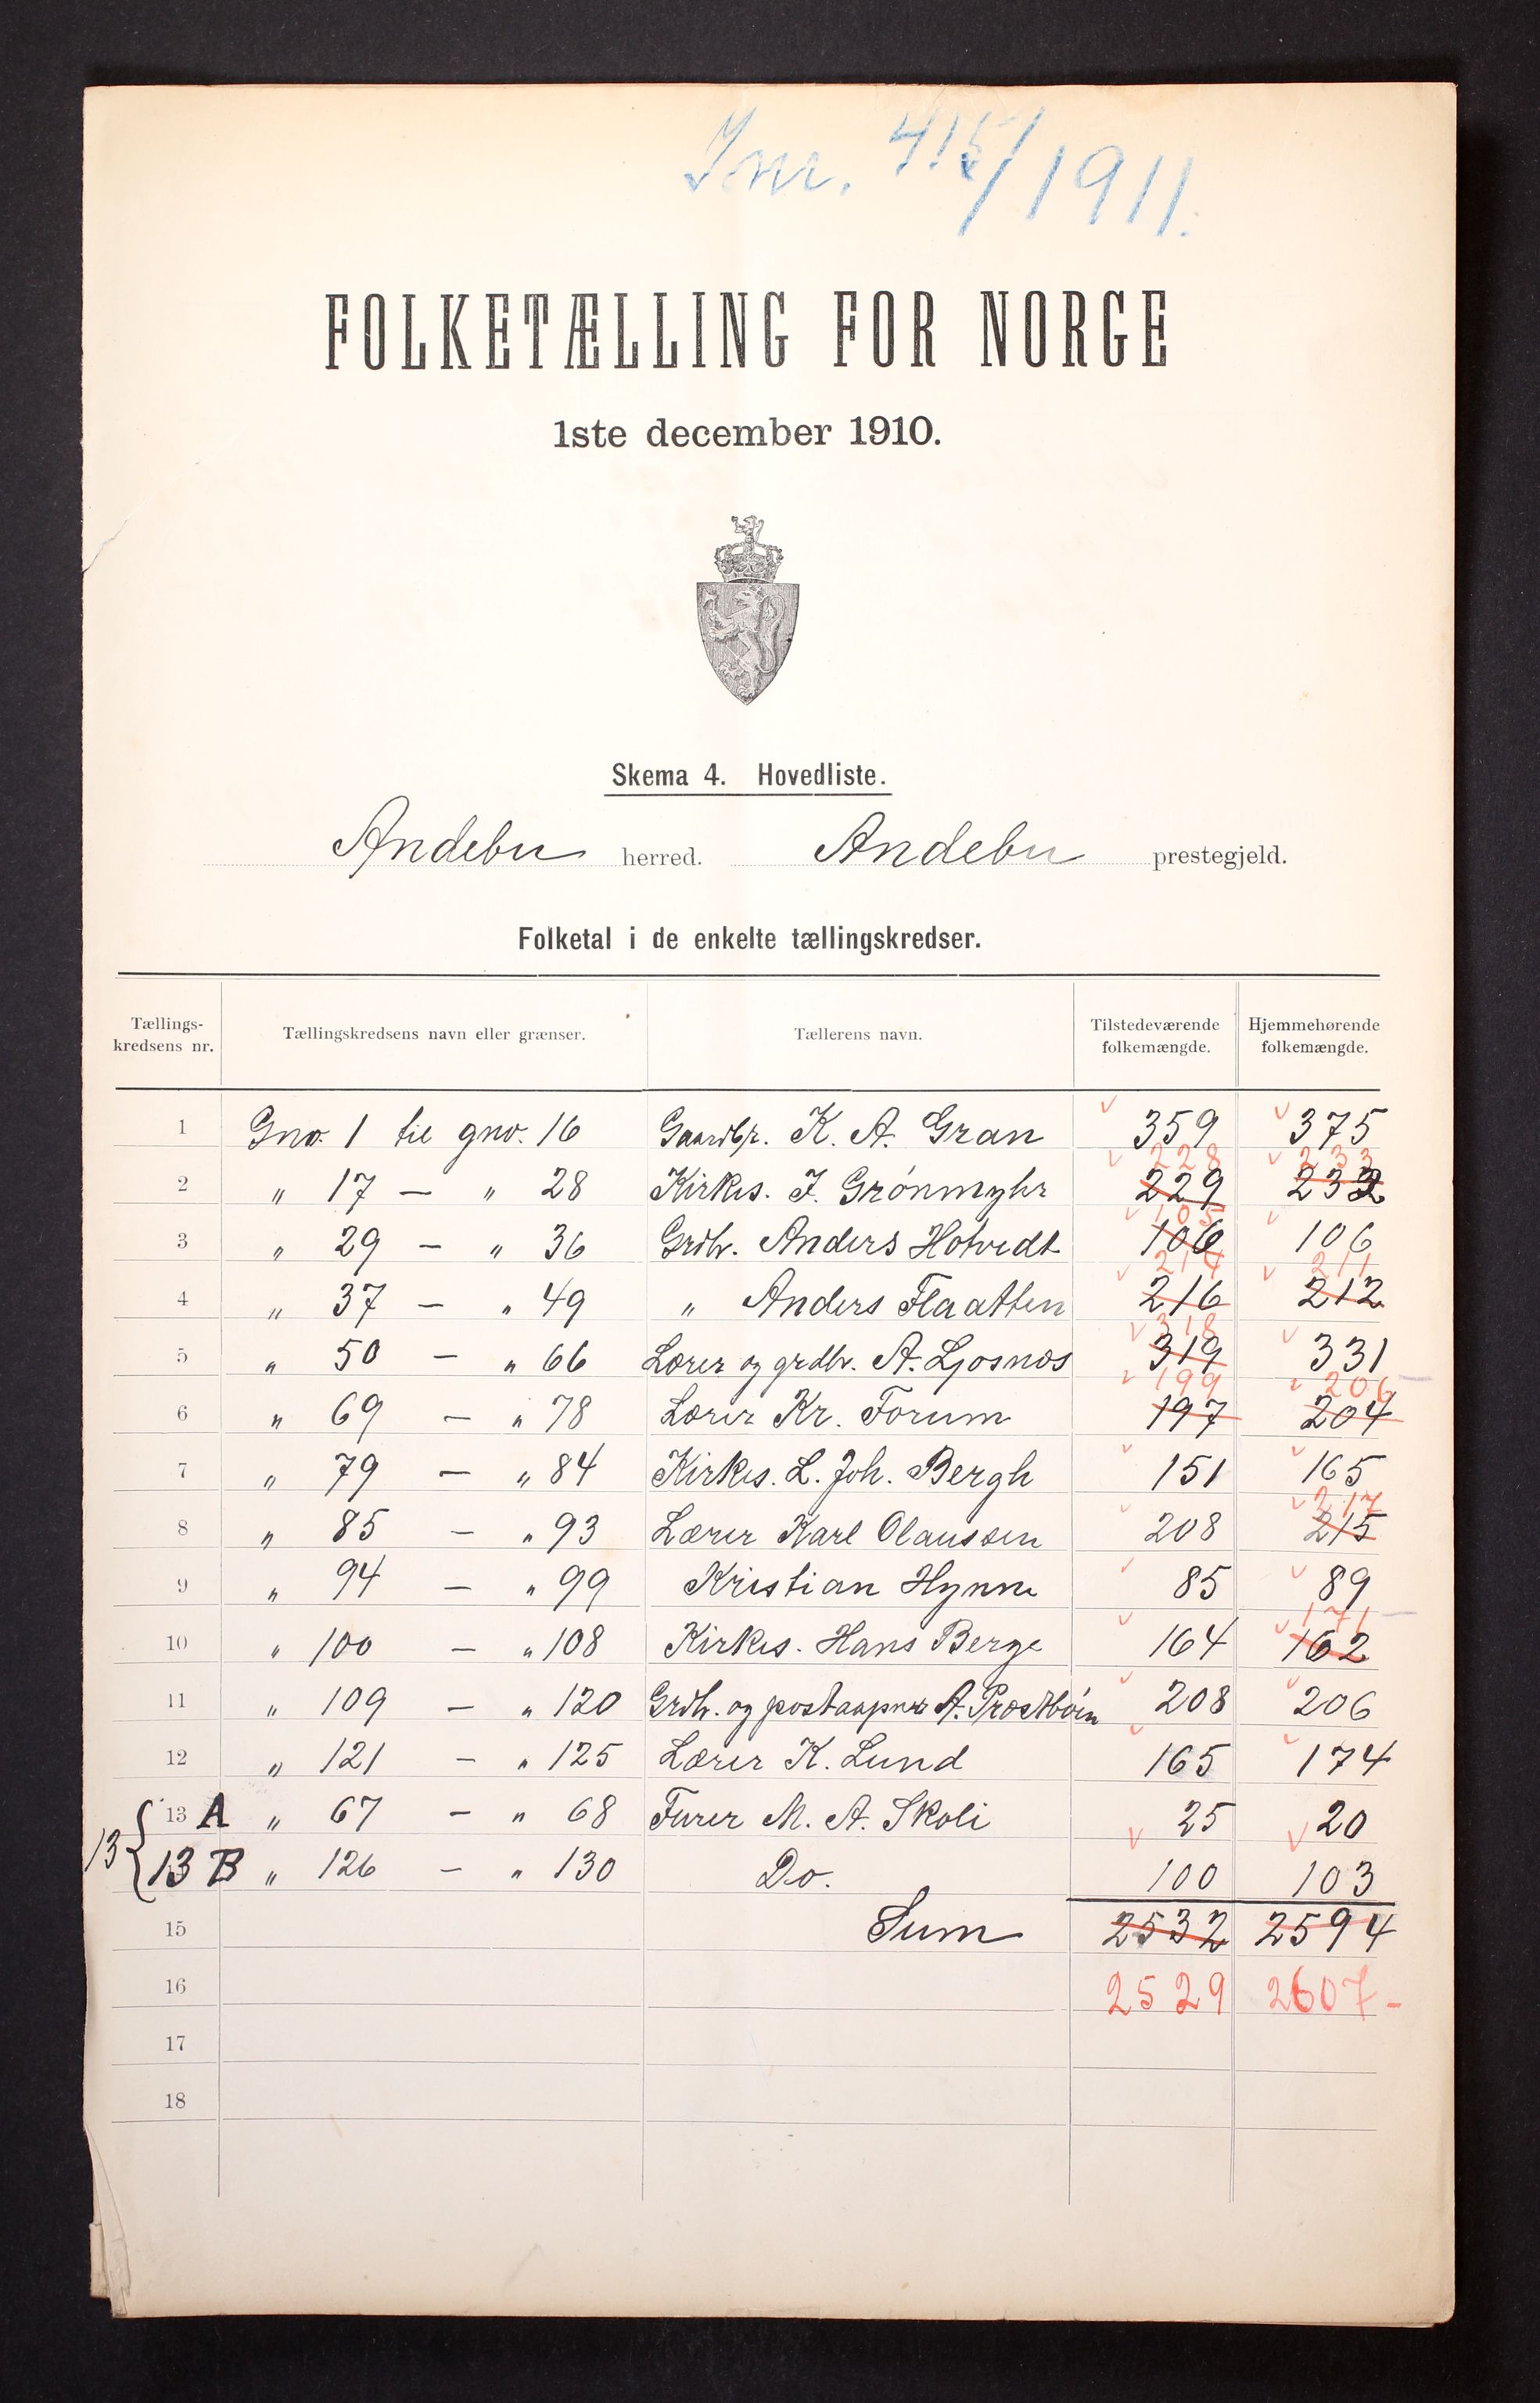 Jnr. 415/1911.
FOLKETÆLLING FOR NORGE
1ste december 1910.
Skema 4. Hovedliste.
Andebu herred. Andebu prestegjeld.
Folketal i de enkelte tællingskredser.
Tællings-kredsens nr. Tællingskredsens navn eller grænser. Tællerens navn. Tilstedeværende folkemængde. Hjemmehørende folkemængde.
1 Gno. 1 til gno. 16 Gaardbr. K. A. Gran 359 375
228 233
2 " 17 — " 28 Kirkes. J. Grønmyhr 229 232
105
3 " 29 — " 36 Grdbr. Anders Hotvedt 106 106
214 211
4 " 37 — " 49 " Anders Flaatten 216 212
318
5 " 50 — " 66 Lærer og grdbr. A. Ljosnæs 319 331
199 206
6 " 69 — " 78 Lærer Kr. Forum 197 204
7 " 79 — " 84 Kirkes. L. Joh. Bergh 151 165
217
8 " 85 — " 93 Lærer Karl Olaussen 208 215
9 " 94 — " 99 Kristian Hynne 85 89
171
10 " 100 — " 108 Kirkes. Hans Berge 164 162
11 " 109 — " 120 Grdb. og postaapner A. Præstbøen 208 206
12 " 121 — " 125 Lærer K. Lund 165 174
13 A " 67 — " 68 Furer M. A. Skoli 25 20
13 { 13 B " 126 — " 130 Do. 100 103
15 Sum 2532 2594
16 2529 2607-
17
18